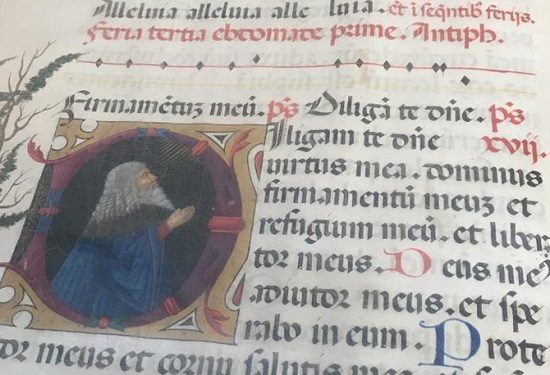 Alleluia alleluia alleluia. et i seqntib ferijs.
Feria tertia ebtomate prime. Antiph.
Firmamētuȝ meū. ps Diligā te dn̄e. ps
iligam te dn̄e xvij.
virtus mea. dominus
firmamentū meuȝ et
refugium meū. et liber
tor meus. Deus meꝰ
adiutor meus. et spe
rabo in eum. Prote
tor meus et cornu salutis mee